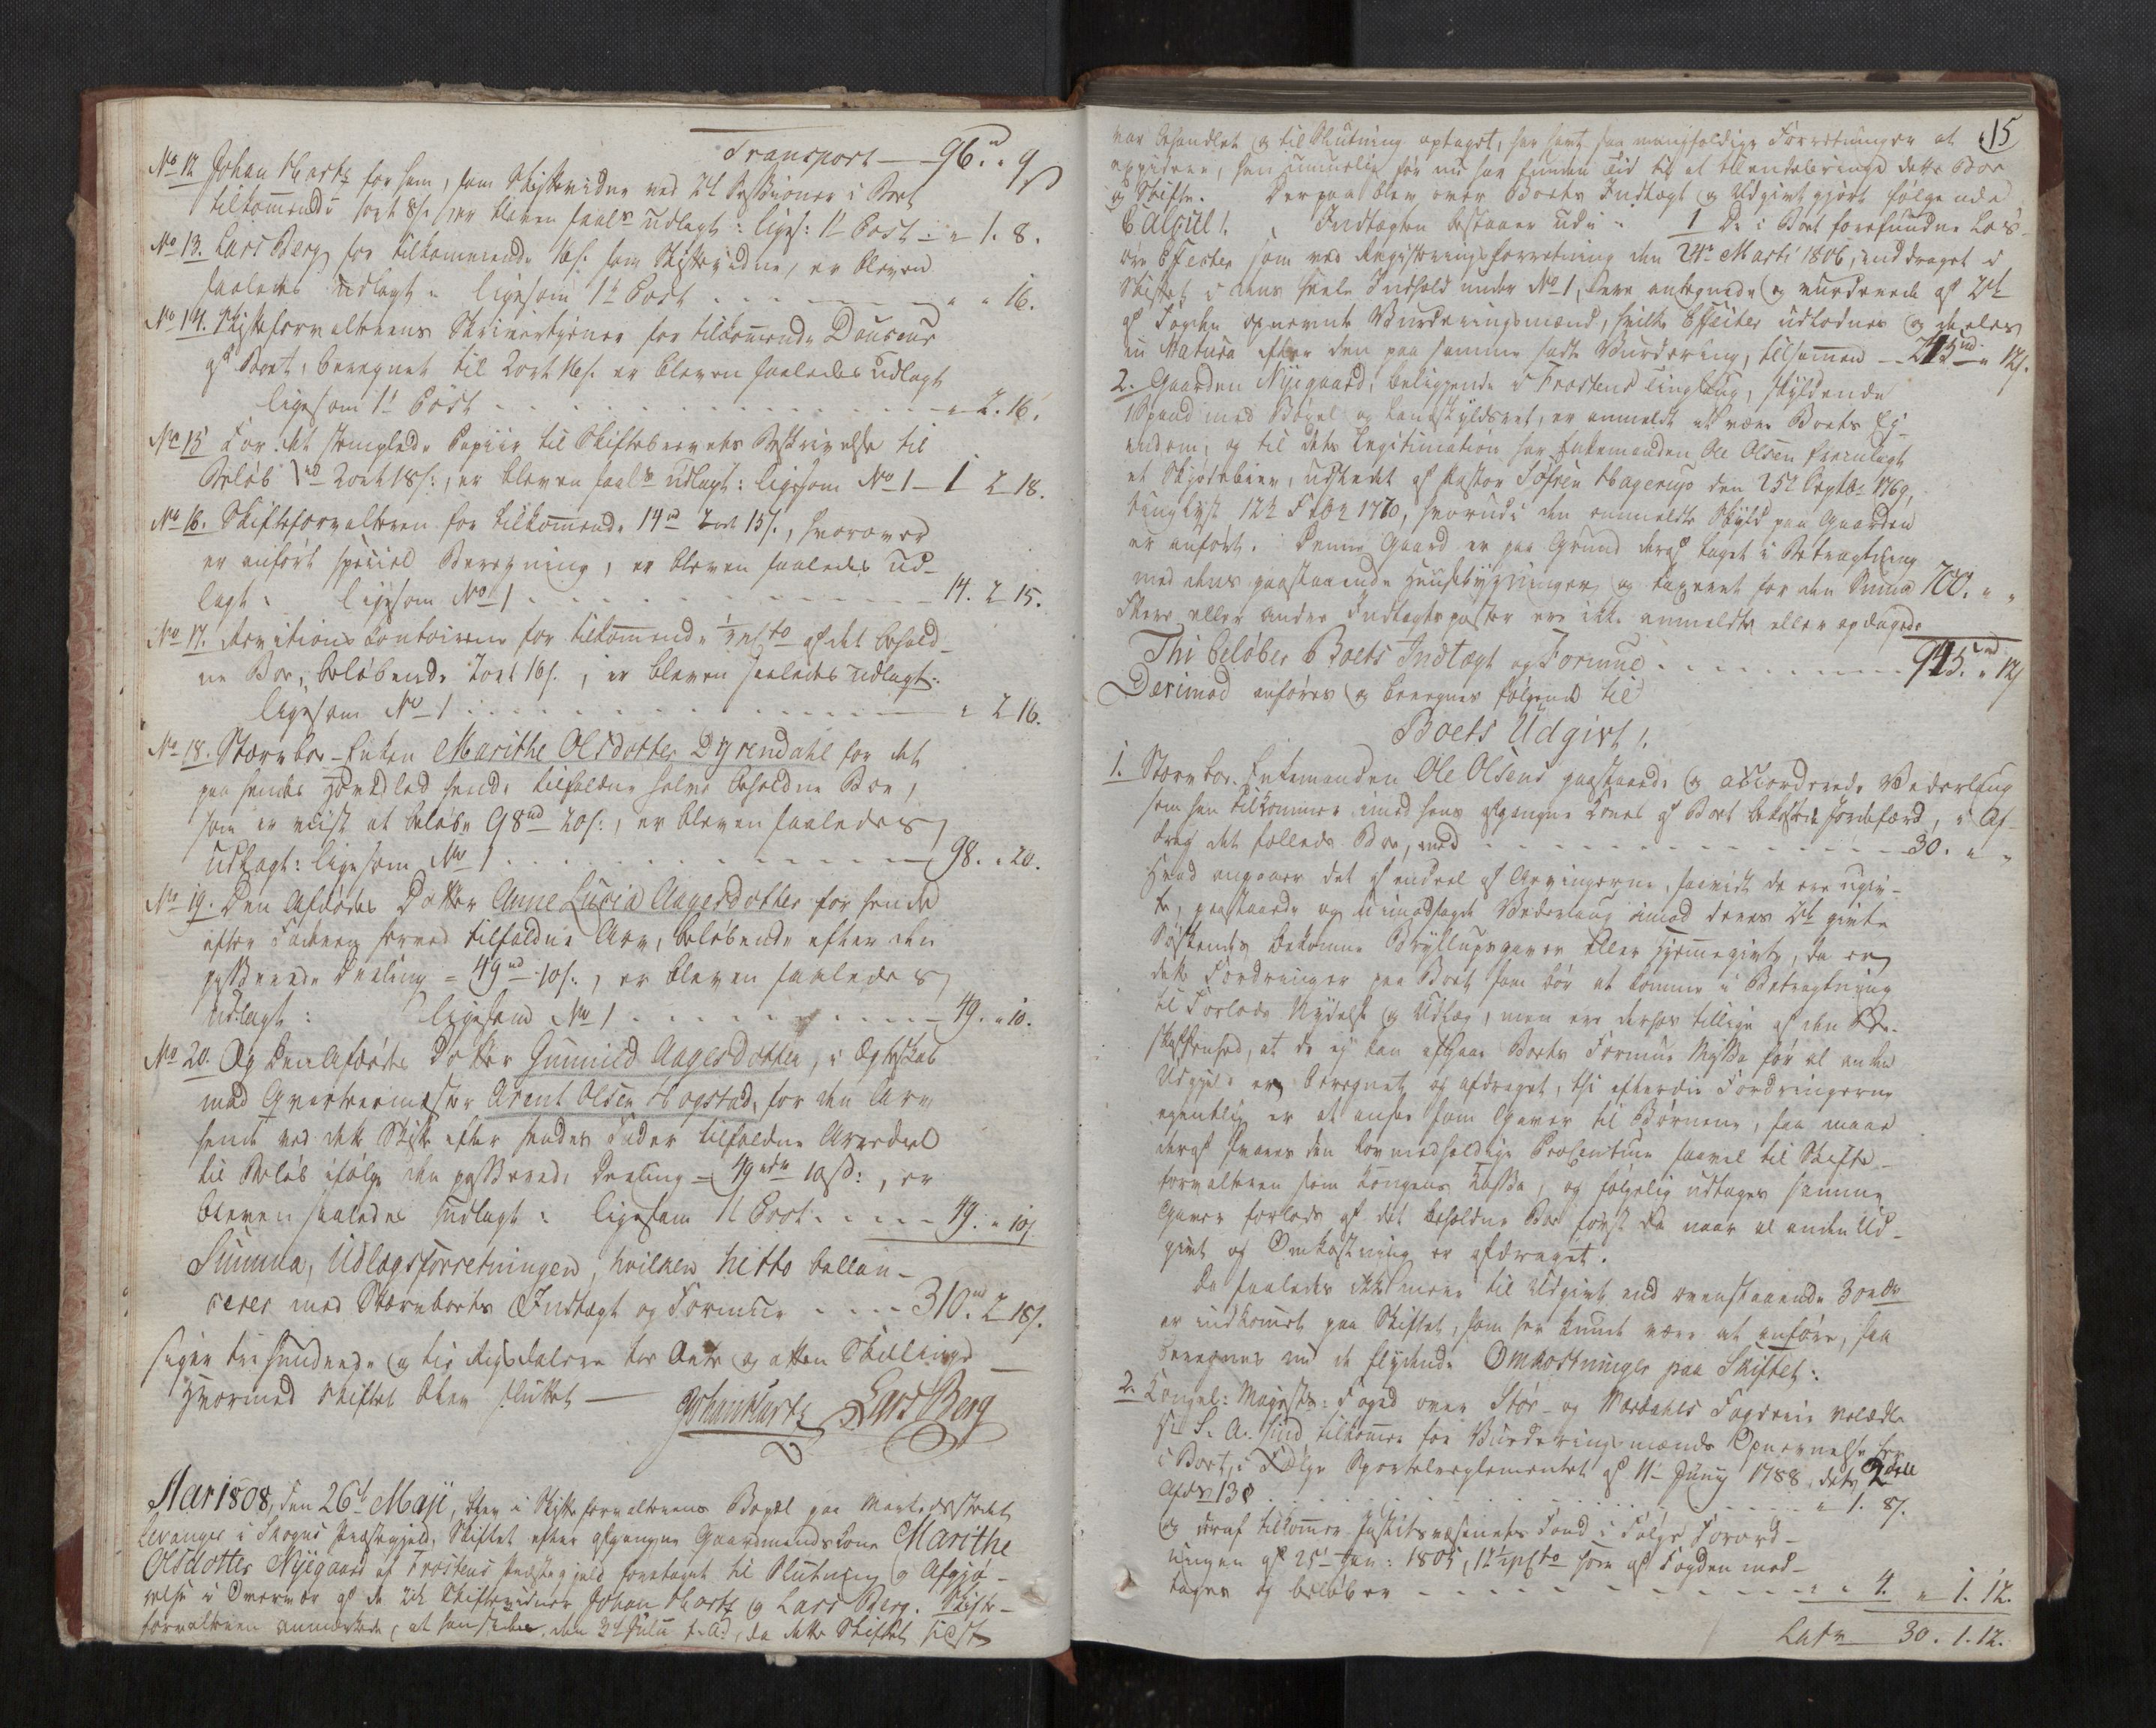 Transport — 96 rd „ 9 s
No 12 Johan Hartz for ham, som Skiftevidne ved 2de Sessioner i Boet
tilkommende 1 ort 8 s. er bleven saals udlagt: liges: 1te Post „ 1. 8.
No 13. Lars Berg for tilkommende 16 s. som Skiftevidne, er bleven
saaledes udlagt „ ligesom 1te Post „ „ 16.
No 14. Skifteforvalterens Skrivertjener for tilkommende Douceur
af Boet, beregnet til 2 ort 16 s. er bleven saaledes udlagt
ligesom 1te Post „ 2. 16.
No 15 For det stemplede Papiir til Skiftebrevets Beskrivelse til
Beløb 1 rd 2 ort 18 s:, er bleven saals udlagt: ligesom No 1 — 1 2 18.
No 16. Skifteforvalteren for tilkommende 14 rd 2 ort 15 s., hvorover
er anført speciel Beregning, er bleven saaledes ud-
lagt: ligesom No 1 14. 2 15.
No 17. Revisions Contoirene for tilkommende af det behold-
ne Boe, beløbende 2 ort 16 s., er bleven saaledes udlagt:
ligesom No 1 „ 2 16.
No 18. Stervboe-Enken Marithe Olsdotter Dyrendahl for det
paa hendes Hovedlod hende tilfaldne halve beholdne Boe,
som er viist at beløbe 98 rd 20 s:, er bleven saaledes
udlagt: ligesom No 1 98. „ 20.
No 19. Den Afdødes Dotter Anne Lucia Aagesdotter for hende
efter Faderen herved tilfaldne Arv, beløbende efter den
passerede Deeling = 49 rd 10 s:, er bleven saaledes
udlagt: ligesom No 1 49. „ 10.
No 20. Og Den Afdødes Dotter Gunnild Aagesdotter, i Ægteskab
med Qvarteermester Arent Olsen Hopstad, for den Arv
hende ved dette Skifte efter hendes Fader tilfaldne Arvedeel
til Beløb ifølge den passerede Deeling = 49 rdr 10 s:, er
bleven saaledes udlagt: ligesom 1te Post 49. „ 10 s
Summa, Udlagsforretningen, hvilken netto ballan-
cerer med Stervboets Indtægt og Formue 310 rd 2 18 s.
siger tre hundrede og tie Rigsdalere toe Orte og atten Skillinge —
Hvormed Skiftet blev sluttet —
Johan Hartz Lars Berg
Aar 1808, den 26de Maji, blev i Skifteforvalterens Bopæl paa Markedsstedet
Levanger i Skogns Præstegjeld, Skiftet efter afgangne Gaardmandskone Marithe
Olsdotter Nyegaard af Frostens Præstegjeld foretaget til Slutning og Afgjø-
relse i Overvær af de 2de Skiftevidner Johan Hartz og Lars Berg. Skifte-
forvalteren anmærkede, at han siden den 3de Julii f. A:, da dette Skifte sidst
15
var behandlet og til Slutning optaget, har havt saa mangfoldige Forretninger at
expidere, han umuelig før nu har funden Tid til at tilendebringe dette Boe
og Skifte. Derpaa blev over Boets Indtægt og Udgivt gjort følgende
Calcul! Indtægten bestaaer udi: 1 De i Boet forefundne Løs-
øre Effecter som ved Registreringsforretning den 24de Marti 1806, inddraget i
Skiftet i dens heele Indhold under No 1, bleve antegnede og vurderede af 2de
af Fogden opnævnte Vurderingsmænd, hvilke Effecter udlodnes og deeles
in Natura efter den paa samme satte Vurdering, tilsammen — 245 rd „ 12 s.
2. Gaarden Nyegaard, beliggende i Frostens Tinglaug, skyldende
1 Spand med Bøxel og Landskyldsret, er anmeldt at være Boets Ei-
endom, og til dets Legitimation har Enkemanden Ole Olsen fremlagt
et Skjødebrev, udstædet af Pastor Søfren Hagerup den 25de Septbr 1769,
tinglyst 12te Febr 1770, hvorudi den anmeldte Skyld paa Gaarden
er anført. Denne Gaard er paa Grund deraf taget i Betragtning
med dens paastaaende Huusbygninger og taxeret for den Summa 700. „ „
Flere eller andre Indtægtsposter ere ikke anmeldte eller opdagede
Thi beløber Boets Indtægt og Formue 945 rd „ 12 s
Derimod anføres og beregnes følgende til
Boets Udgivt!
1. Stervboe-Enkemanden Ole Olsens paastaaede og accorderede Vederlaug
som han tilkommer imod hans afgangne Kones af Boet bekostede Jordefærd, i Af-
drag det fælleds Boe, med 30. „ „
Hvad angaaer det af endeel af Arvingerne, saavidt de ere ugiv-
te, paastaaede og uimodsagde Vederlaug imod deres 2de givte
Søskendes bekomne Bryllupsgaver eller Hjemmegivt, da er
dette Fordringer paa Boet som bør at komme i Betragtning
til Forlods Nydelse og Udlæg, men ere derhos tillige af den Be-
skaffenhed, at de ej kan afgaae Boets Formues Massa før al anden
Udgivt er beregnet og afdraget, thi efterdie Fordringerne
egentlig er at ansee som Gaver til Børnene, saa maae
deraf svares den lovmedholdige Procentum saavel til Skifte-
forvalteren som Kongens Kassa, og følgelig udtages samme
Gaver forlods af det beholdne Boe først da naar al anden Ud-
givt og Omkostning er afdraget.
Da saaledes ikke mere til Udgivt end ovenstaaende 30 rdr
er indkomet paa Skiftet, som her kunde være at anføre, saa
beregnes nu de flydende Omkostninger paa Skiftet:
2. Kongel: Majests: Foged over Stør- og Værdahls Fogderie velædle
Hr S. A. Lind tilkommer for Vurderingsmænds Opnævnelse her
i Boet, i Følge Sportelreglementet af 11te Junij 1788, dets 2det
Afds 13 § „ 1. 8 s.
og deraf tilkommer Justitsvæsenets Fond i Følge Forord-
ningen af 25de Jan: 1805, 12½ pCto som af Fogden mod-
tages og beløber „ „ 4. „ 1. 12.
Latr 30. 1. 12.